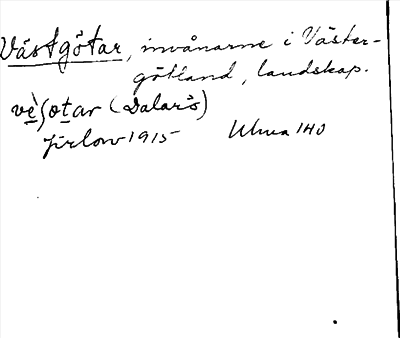 Västgötar, invånarne i Väster-
götland, landskap.
vèʃotar (Dalarö)
Jirlow 1915 Ulma 140